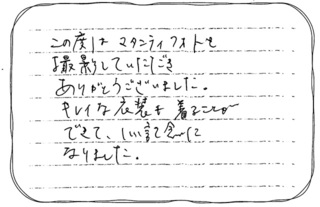 この度は マタニティフォトを
撮影していただき
ありがとうございました。
キレイな衣装も 着ることが
できて、いい記念に
なりました。